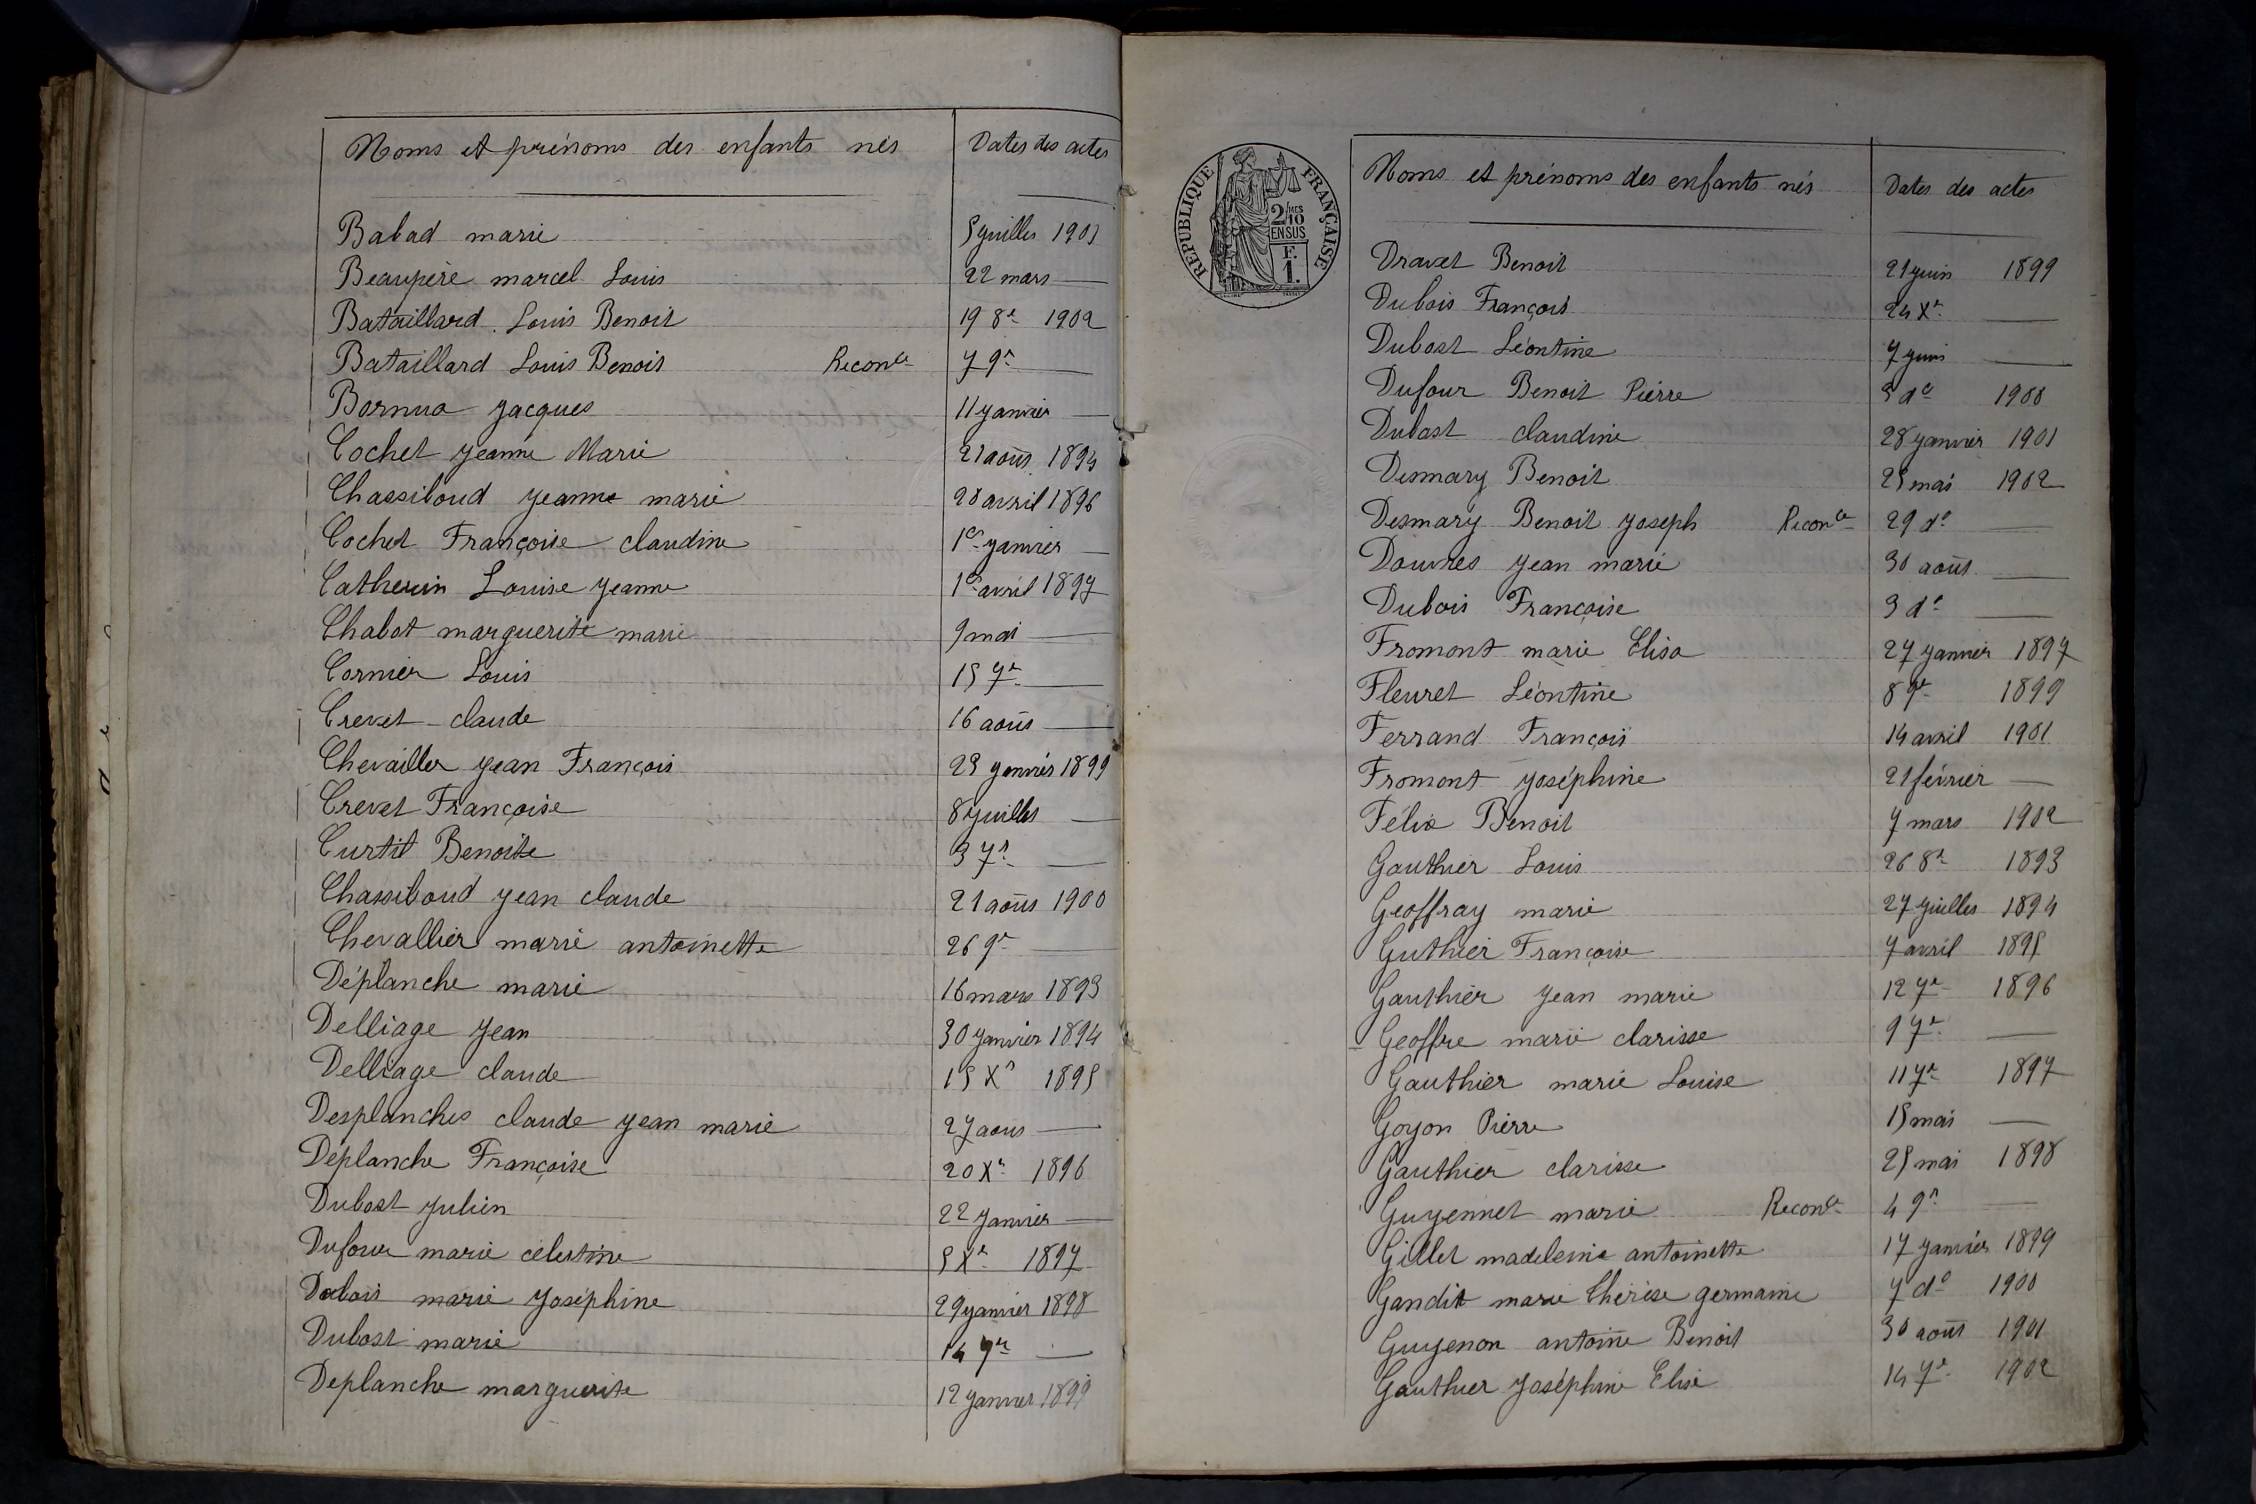 Noms et prénoms des enfants nés Dates des actes
Babad marie 5 juillet 1901
Beaupère marcel Louis 22 mars —
Bataillard Louis Benoit 19 8re 1902
Bataillard Louis Benoit Reconce 7 9re —
Bornua Jacques 11 janvier —
Cochet Jeanne Marie 21 août 1894
Chassiboud Jeanne marie 28 avril 1896
Cochet Françoise claudine 1er janvier —
Catherin Louise Jeanne 1er avril 1897
Chabot marguerite marie 9 mai —
Cornier Louis 15 7re —
Crevet claude 16 août —
Chevailler Jean François 23 janvier 1899
Crevet Françoise 8 juillet —
Curtil Benoite 3 7re —
Chassiboud Jean claude 21 août 1900
Chevallier marie antoinette 26 9re —
Déplanche marie 16 mars 1893
Delliage Jean 30 janvier 1894
Delliage claude 15 Xre 1895
Desplanches claude Jean marie 27 août —
Déplanche Françoise 20 Xre 1896
Dubost Julien 22 janvier —
Dufour marie célestine 5 Xre 1897
Dubois marie Joséphine 29 janvier 1898
Dubost marie 14 9re —
Deplanche marguerite 12 janvier 1899
RÉPUBLIQUE FRANÇAISE
2/10 MES
EN SUS
F.
1.
Noms et prénoms des enfants nés Dates des actes
Dravet Benoit 21 juin 1899
Dubois François 24 Xre —
Dubost Léontine 7 juin —
Dufour Benoit Pierre 3 do 1900
Dubost claudine 28 janvier 1901
Desmary Benoit 25 mai 1902
Desmary Benoit Joseph Reconce 29 do —
Douvres Jean marie 30 août —
Dubois Françoise 3 do —
Fromont marie Elisa 27 janvier 1897
Fleuret Léontine 8 9re 1899
Ferrand François 14 avril 1901
Fromont Joséphine 21 février —
Félix Benoit 7 mars 1902
Gauthier Louis 26 8re 1893
Geoffray marie 27 juillet 1894
Guthier Françoise 7 avril 1895
Gauthier Jean marie 12 7re 1896
Geoffre marie clarisse 9 7re —
Gauthier marie Louise 11 7re 1897
Goyon Pierre 15 mai —
Gauthier clarisse 25 mai 1898
Guyennet marie Reconce 4 9re —
Gillet madeleine antoinette 17 janvier 1899
Gandit marie thérèse germaine 7 do 1900
Guyenon antoine Benoit 30 août 1901
Gauthier Joséphine Elise 14 7re 1902